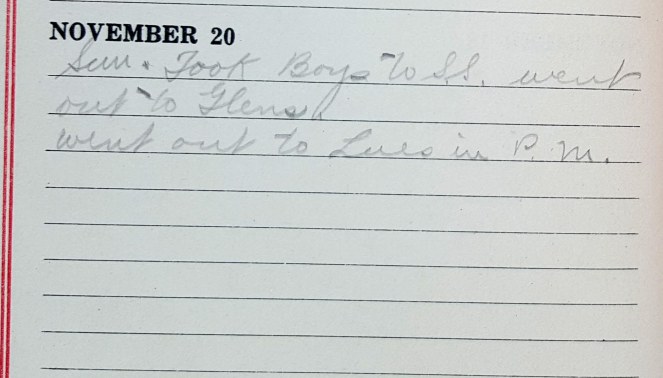 NOVEMBER 20
Sun. Took Boys to S.S. went
out to Glens.
went out to Lues in P.M.